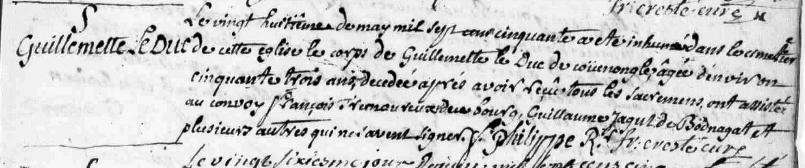 fr: cresté curé
S
Guillemette Le Duc
Le vingt huitiéme de may mil sept cens cinquante a eté inhumé dans le cimettier
de cette eglise le corps de Guillemette le Duc de couenongle âgée d'environ
cinquante trois ans decedée aprés avoir reçu tous les sacremens, ont assisté
au convoy François Tremoureux du bourg, Guillaume Jagut de Bodnagat et
plusieurs autres qui ne savent signer, Philippe R. fr: cresté curé
Le vingt sixiesme jour